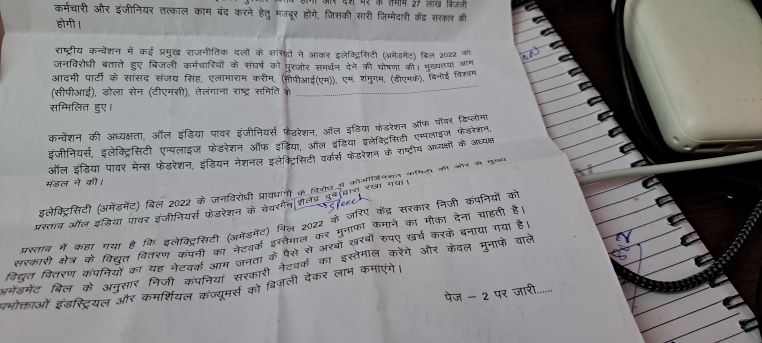 कर्मचारी और इंजीनियर तत्काल काम बंद करने हेतु मजबूर होंगे, जिसकी सारी जिम्मेदारी केंद्र सरकार की
होगी।
राष्ट्रीय कन्वेंशन में कई प्रमुख राजनीतिक दलों के सांसदों ने आकर इलेक्ट्रिसिटी (अमेंडमेंट) बिल 2022 को
जनविरोधी बताते हुए बिजली कर्मचारियों के संघर्ष को पुरजोर समर्थन देने की घोषणा की। मुख्यतया आम
आदमी पार्टी के सांसद संजय सिंह, एलामाराम करीम, (सीपीआई(एम)), एम. शंमुगम, (डीएमके), बिनोई विश्वम
(सीपीआई), डोला सेन (टीएमसी), तेलंगाना राष्ट्र समिति के
सम्मिलित हुए।
कन्वेंशन की अध्यक्षता, ऑल इंडिया पावर इंजीनियर्स फेडरेशन, ऑल इंडिया फेडरेशन ऑफ पॉवर डिप्लोमा
इंजीनियर्स, इलेक्ट्रिसिटी एम्पलाइज फेडरेशन ऑफ इंडिया, ऑल इंडिया इलेक्ट्रिसिटी एम्पलाइज फेडरेशन,
ऑल इंडिया पावर मेन्स फेडरेशन, इंडियन नेशनल इलेक्ट्रिसिटी वर्कर्स फेडरेशन के राष्ट्रीय अध्यक्षों के अध्यक्ष
मंडल ने की।
इलेक्ट्रिसिटी (अमेंडमेंट) बिल 2022 के जनविरोधी प्रावधानों के विरोध में कोऑर्डिनेशन कमिटी की ओर से मुख्य
प्रस्ताव ऑल इंडिया पावर इंजीनियर्स फेडरेशन के चेयरमैन शैलेंद्र दुबे द्वारा रखा गया।
speech
प्रस्ताव में कहा गया है कि इलेक्ट्रिसिटी (अमेंडमेंट) बिल 2022 के जरिए केंद्र सरकार निजी कंपनियों को
सरकारी क्षेत्र के विद्युत वितरण कंपनी का नेटवर्क इस्तेमाल कर मुनाफा कमाने का मौका देना चाहती है।
विद्युत वितरण कंपनियों का यह नेटवर्क आम जनता के पैसे से अरबों खरबों रुपए खर्च करके बनाया गया है।
अमेंडमेंट बिल के अनुसार निजी कंपनियां सरकारी नेटवर्क का इस्तेमाल करेंगे और केवल मुनाफे वाले
उपभोक्ताओं इंडस्ट्रियल और कमर्शियल कंज्यूमर्स को बिजली देकर लाभ कमाएंगे।
पेज – 2 पर जारी......